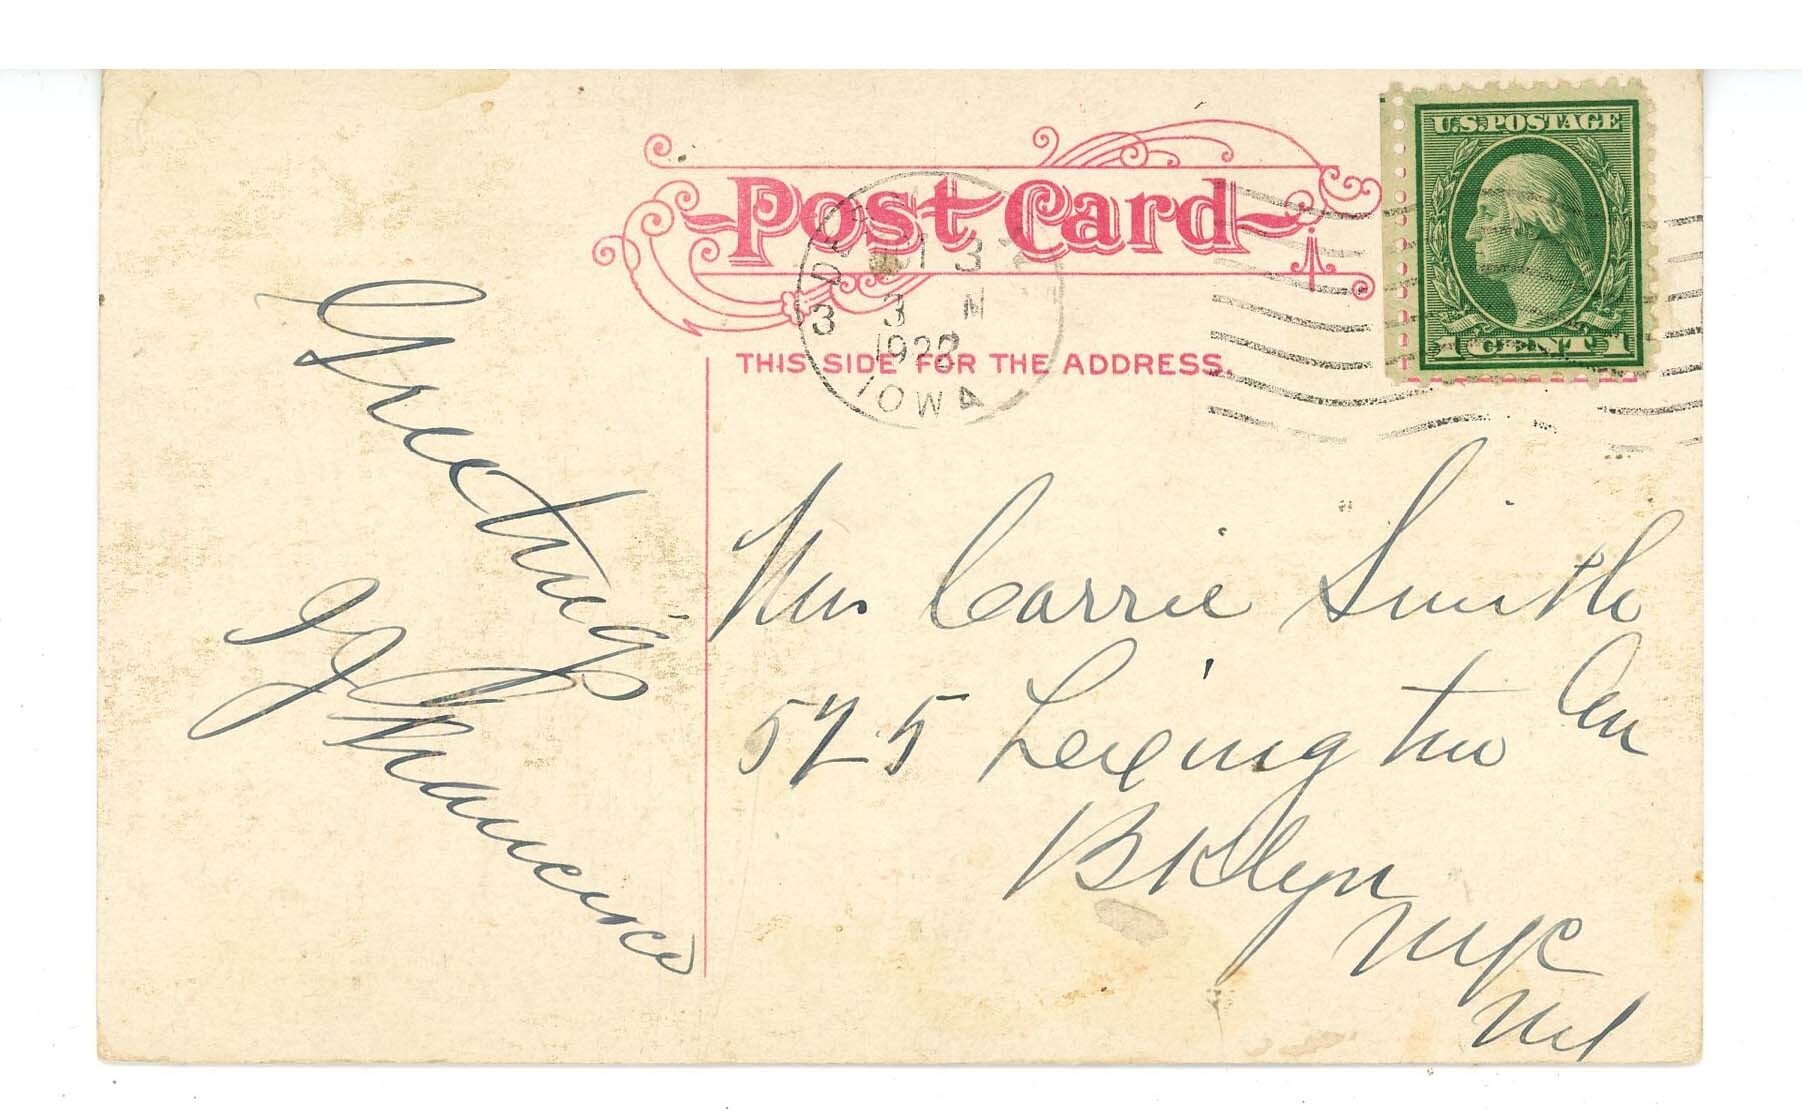 Post Card
U.S. POSTAGE
13
3 M
1922
IOWA
THIS SIDE FOR THE ADDRESS.
Greetings
Mrs Carrie Smith
525 Lexington Av
Bklyn
NYC
NY